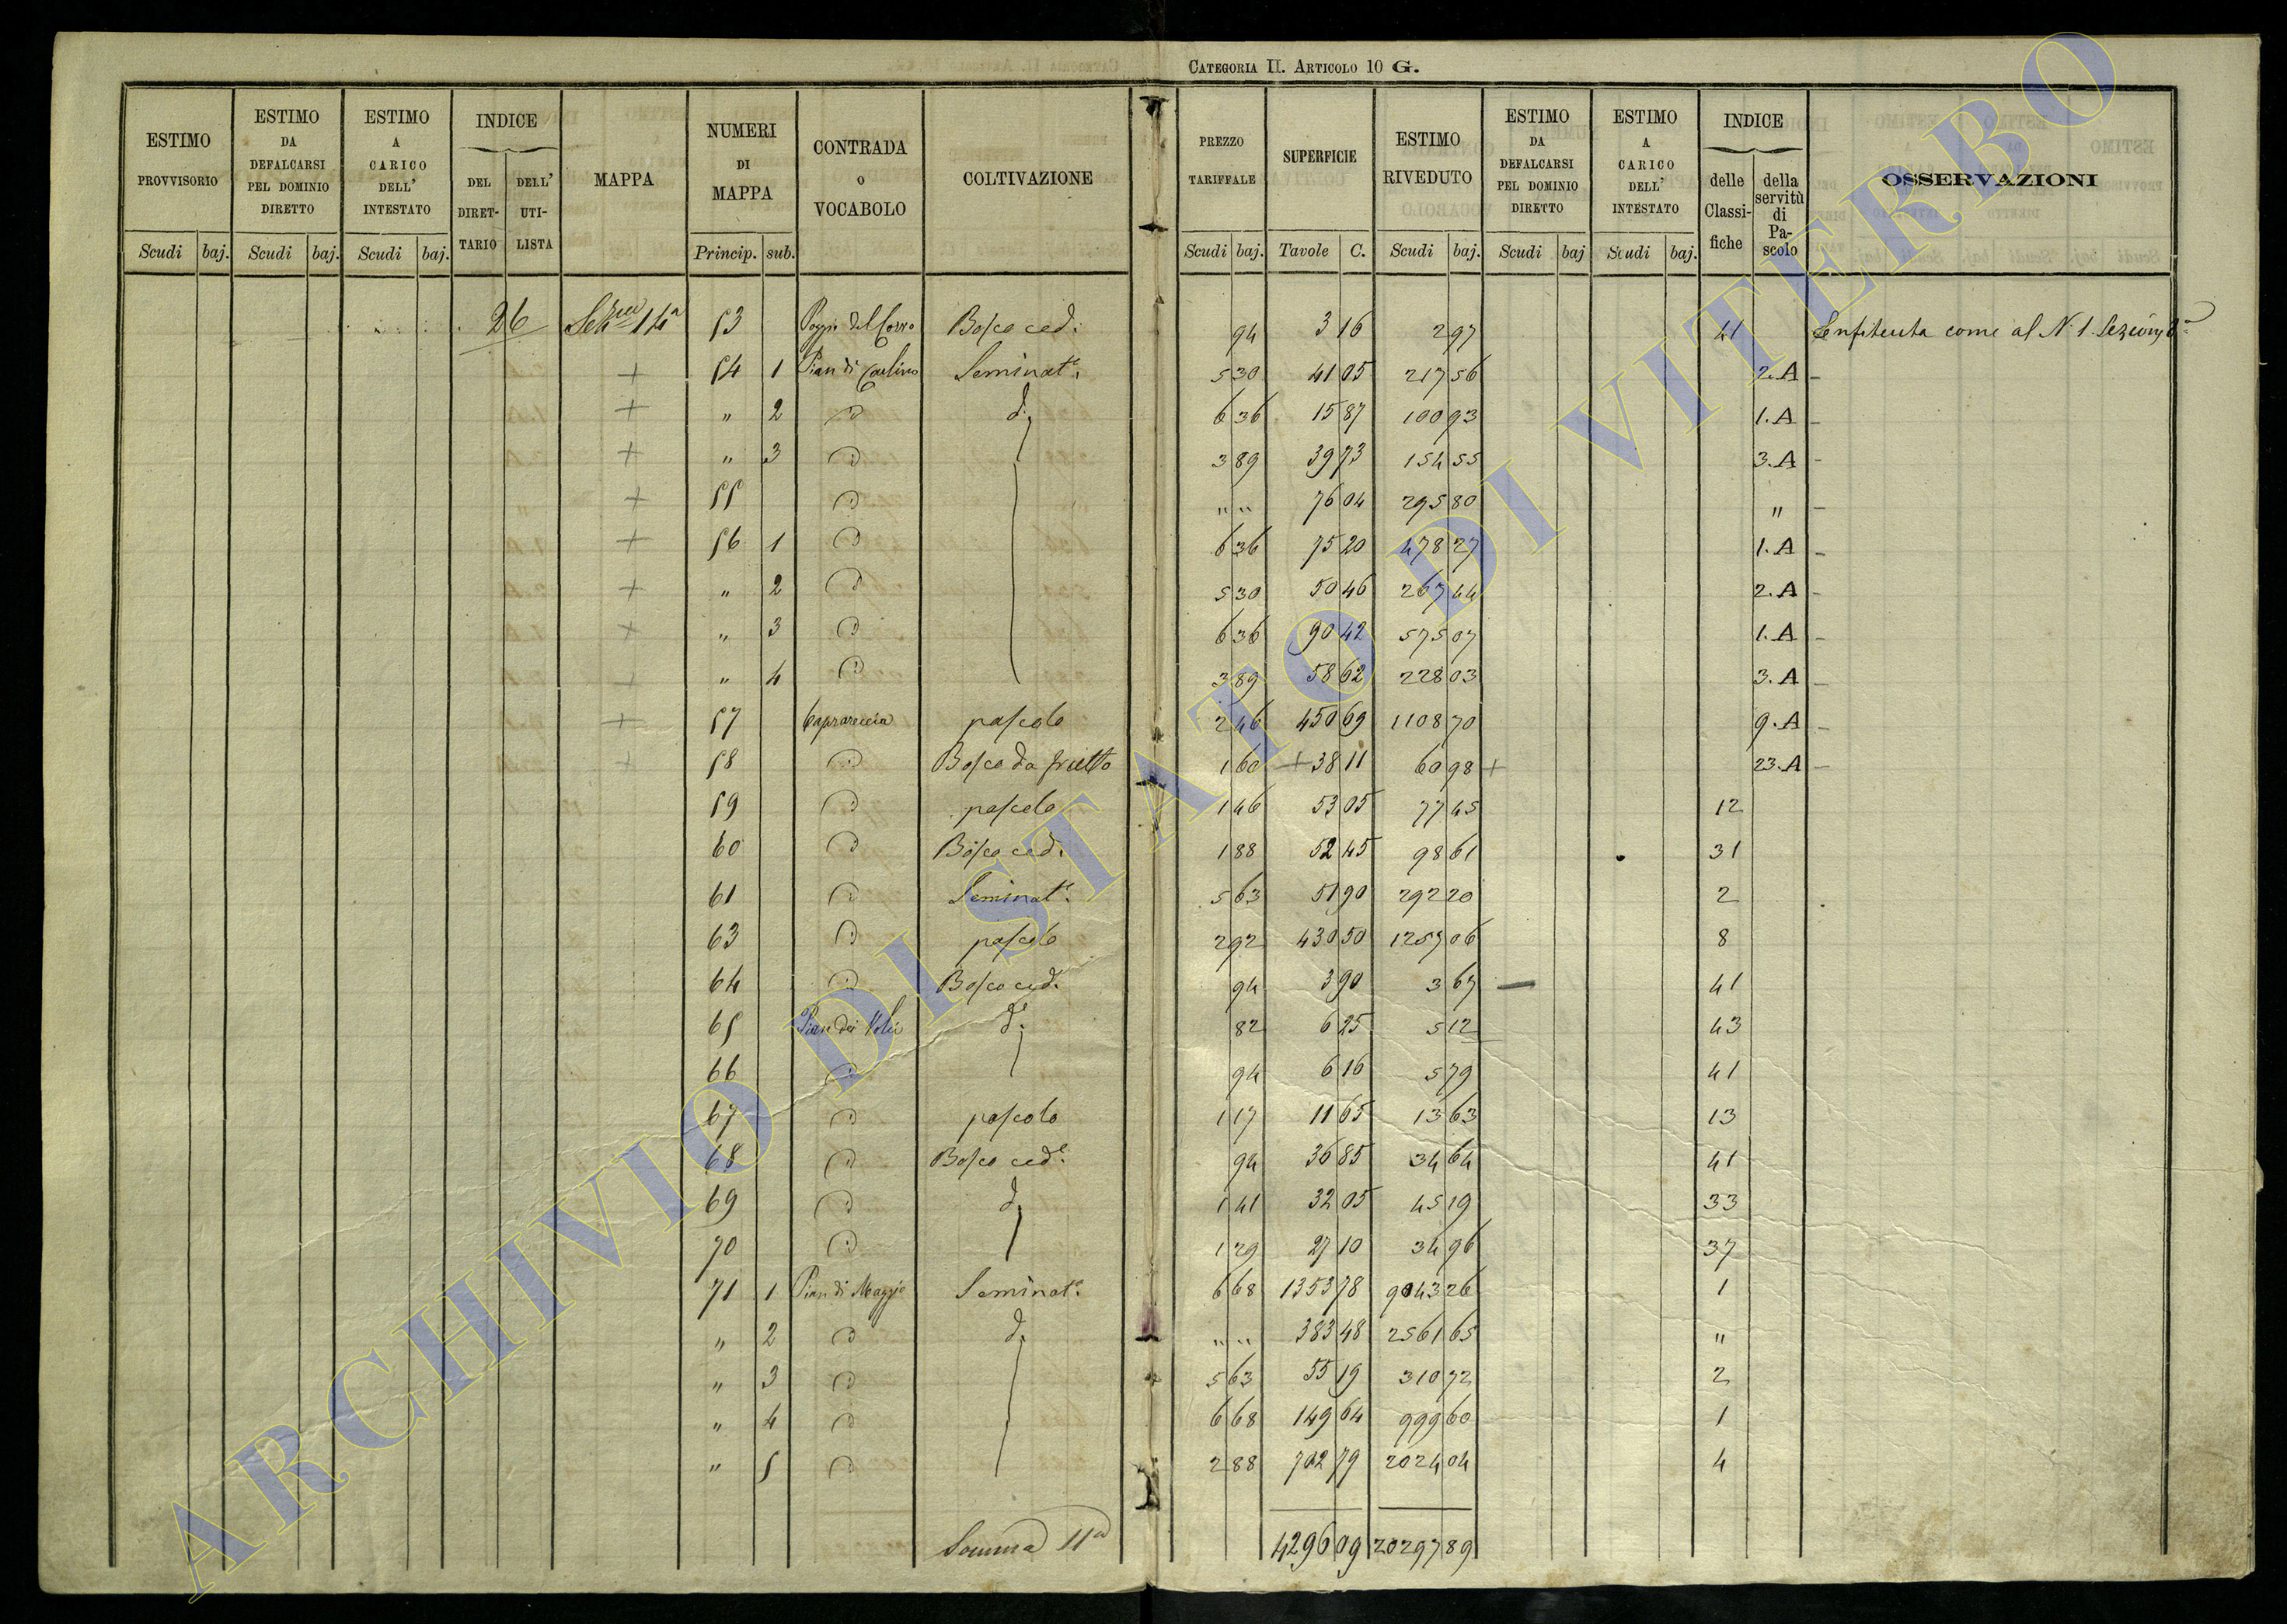 CATEGORIA II. ARTICOLO 10 G.
ESTIMO PROVVISORIO
ESTIMO DA DEFALCARSI PEL DOMINIO DIRETTO
ESTIMO A CARICO DELL' INTESTATO
INDICE
DEL DIRET- TARIO
DELL' UTI- LISTA
MAPPA
NUMERI DI MAPPA
CONTRADA O VOCABOLO
COLTIVAZIONE
PREZZO TARIFFALE
SUPERFICIE
ESTIMO RIVEDUTO
ESTIMO DA DEFALCARSI PEL DOMINIO DIRETTO
ESTIMO A CARICO DELL' INTESTATO
INDICE
delle Classi- fiche
della servitù di Pa- scolo
OSSERVAZIONI
Scudi baj. Scudi baj. Scudi baj. Princip. sub. Scudi baj. Tavole C. Scudi baj. Scudi baj Scudi baj.
26 Sez 14a 53 Poggio del Cerro Bosco ced. 94 3 16 2 97 41 Enfiteuta come al N. 1. Sezione
+ 54 1 Pian di Carlino Seminat. 5 30 41 05 217 56 2.A -
+ " 2 d d. 6 36 15 87 100 93 1.A -
+ " 3 d 3 89 39 73 154 55 3.A -
+ 55 d " " 76 04 295 80 " -
+ 56 1 d 6 36 75 20 478 27 1.A -
+ " 2 d 5 30 50 46 267 44 2.A -
+ " 3 d 6 36 90 42 575 07 1.A -
+ " 4 d 3 89 58 62 228 03 3.A -
+ 57 Caprareccia pascolo 2 46 450 69 1108 70 9.A -
+ 58 d Bosco da frutto 1 60 + 38 11 60 98 + 23.A -
59 d pascolo 1 46 53 05 77 45 12
60 d Bosco ced. 1 88 52 45 98 61 31
61 d Seminat. 5 63 51 90 292 20 2
63 d pascolo 2 92 430 50 1257 06 8
64 d Bosco ced. 94 3 90 3 67 — 41
65 Pian dei d. 82 6 25 5 12 43
66 d 94 6 16 5 79 41
67 d pascolo 1 17 11 65 13 63 13
68 d Bosco ced. 94 36 85 34 64 41
69 d d. 1 41 32 05 45 19 33
70 d 1 29 27 10 34 96 37
71 1 Pian di Maggio Seminat. 6 68 1353 78 9043 26 1
" 2 d d. " " 383 48 2561 65 "
" 3 d 5 63 55 19 310 72 2
" 4 d 6 68 149 64 999 60 1
" 5 d 2 88 702 79 2024 04 4
Somma 11a 4296 09 20297 89
ARCHIVIO DI STATO DI VITERBO